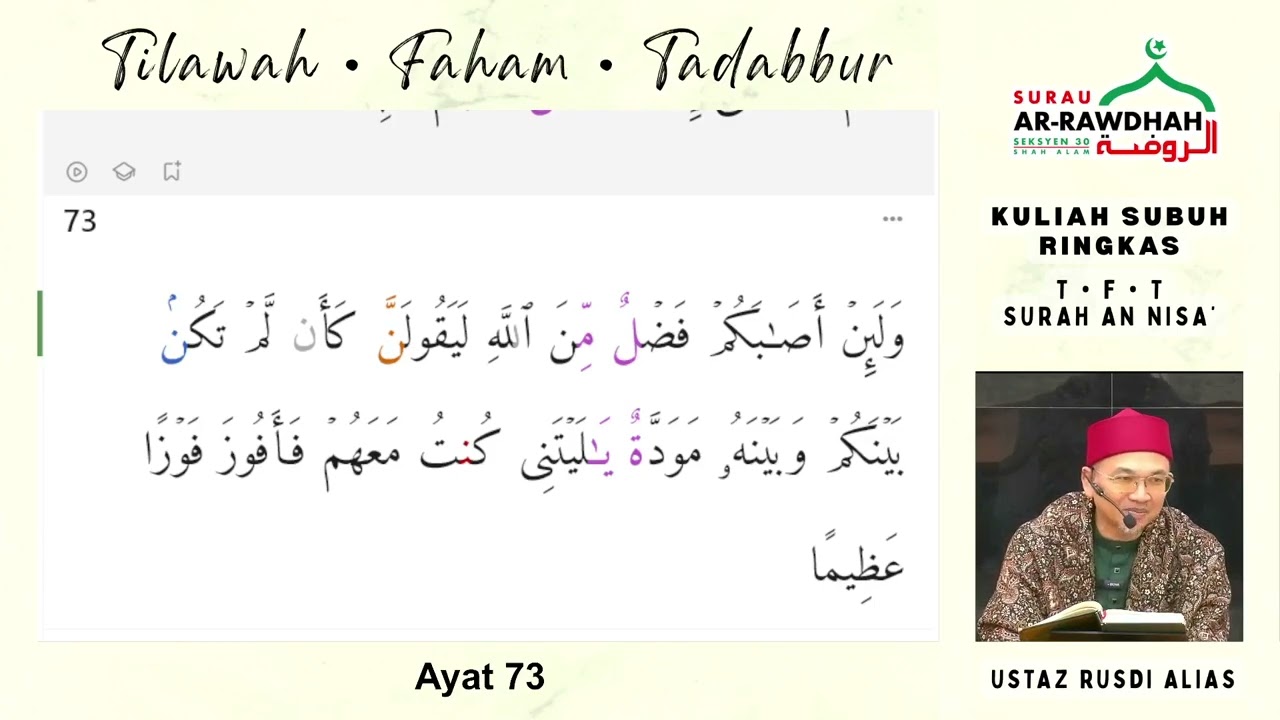 Tilawah • Faham • Tadabbur
73
وَلَئِنْ أَصَـٰبَكُمْ فَضْلٌ مِّنَ ٱللَّهِ لَيَقُولَنَّ كَأَن لَّمْ تَكُنۢ
بَيْنَكُمْ وَبَيْنَهُۥ مَوَدَّةٌ يَـٰلَيْتَنِى كُنتُ مَعَهُمْ فَأَفُوزَ فَوْزًا
عَظِيمًا
Ayat 73
SURAU
AR-RAWDHAH
SEKSYEN 30
SHAH ALAM
الروضة
KULIAH SUBUH
RINGKAS
T • F • T
SURAH AN NISA'
USTAZ RUSDI ALIAS